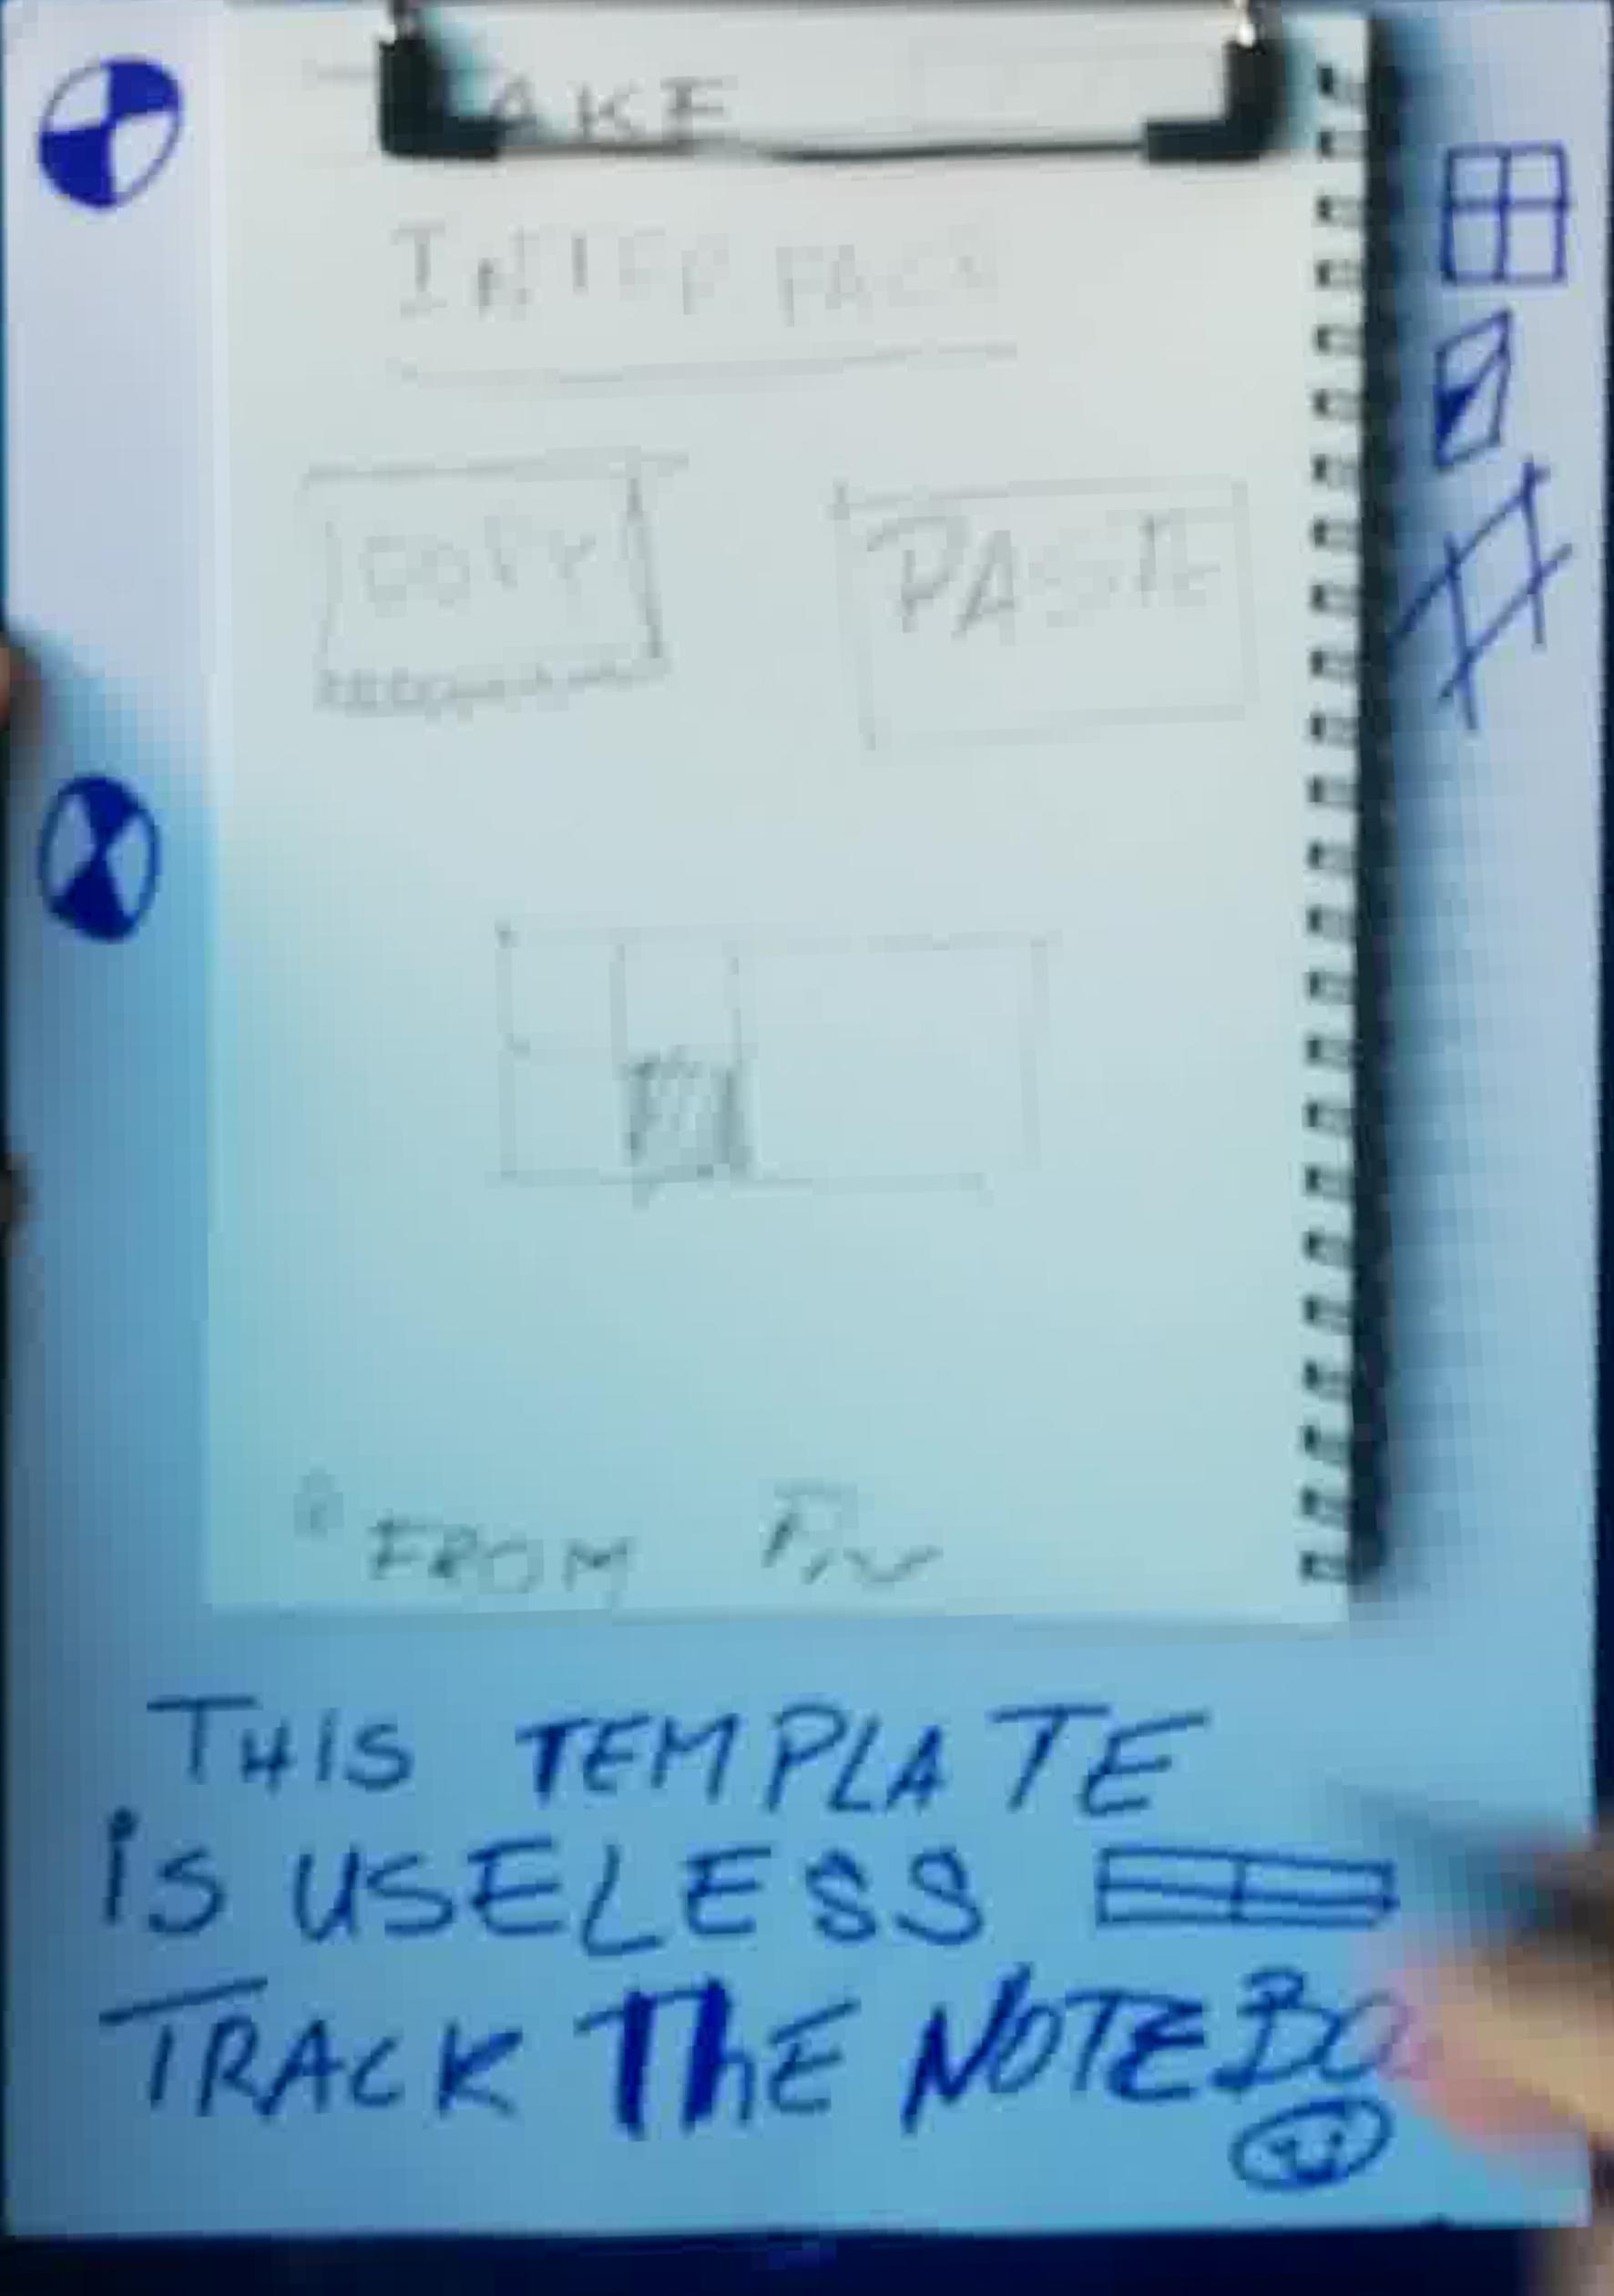 AKE
INTERFACE
COPY
PASTE
FROM
THIS TEMPLATE
iS USELESS
TRACK ThE NOTEBO